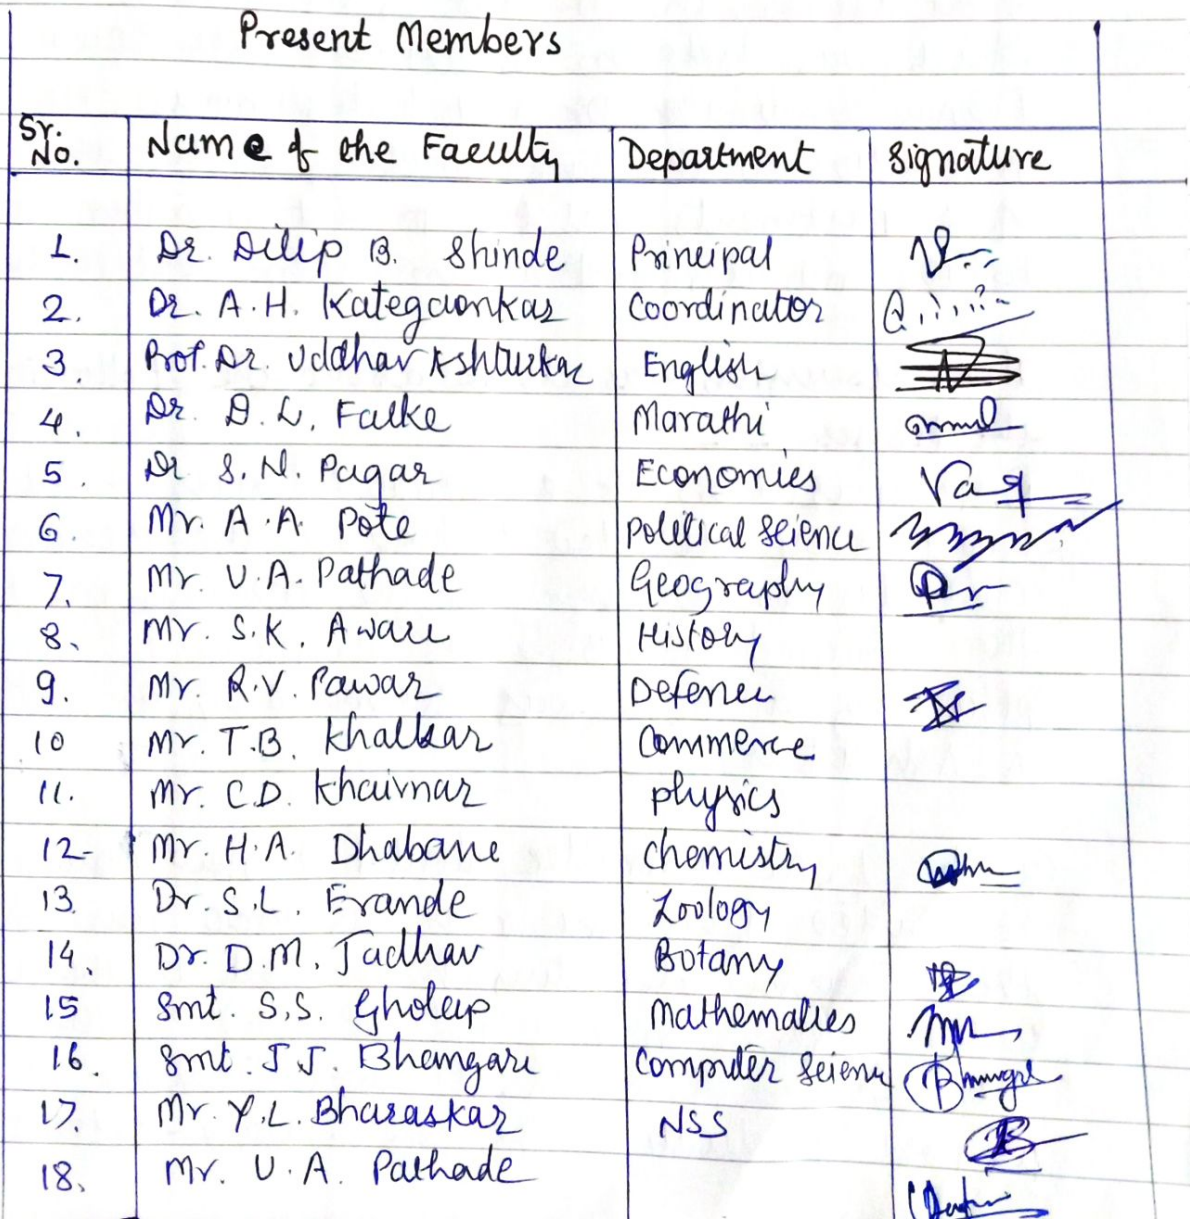 Present Members
Sr. No. Name of the Faculty Department Signature
1. Dr. Dilip B. Shinde Principal
2. Dr. A.H. Kategaonkar Coordinator
3. Prof. Dr Uddhav Ashturkar English
4. Dr. D. L. Falke Marathi
5. Dr S. N. Pagar Economics
6. Mr. A.A. Pote Political Science
7. Mr. U.A. Pathade Geography
8. Mr. S.K. Aware History
9. Mr. R.V. Pawar Defence
10 Mr. T.B. Khalkar Commerce
11. Mr. C.D. Khairnar Physics
12- Mr. H.A. Dhabane Chemistry
13. Dr. S.L. Erande Zoology
14. Dr. D.M. Jadhav Botany
15 Smt. S.S. Gholap Mathematics
16. Smt. J J. Bhangare Computer Science
17. Mr. Y.L. Bharaskar NSS
18. Mr. U.A. Pathade